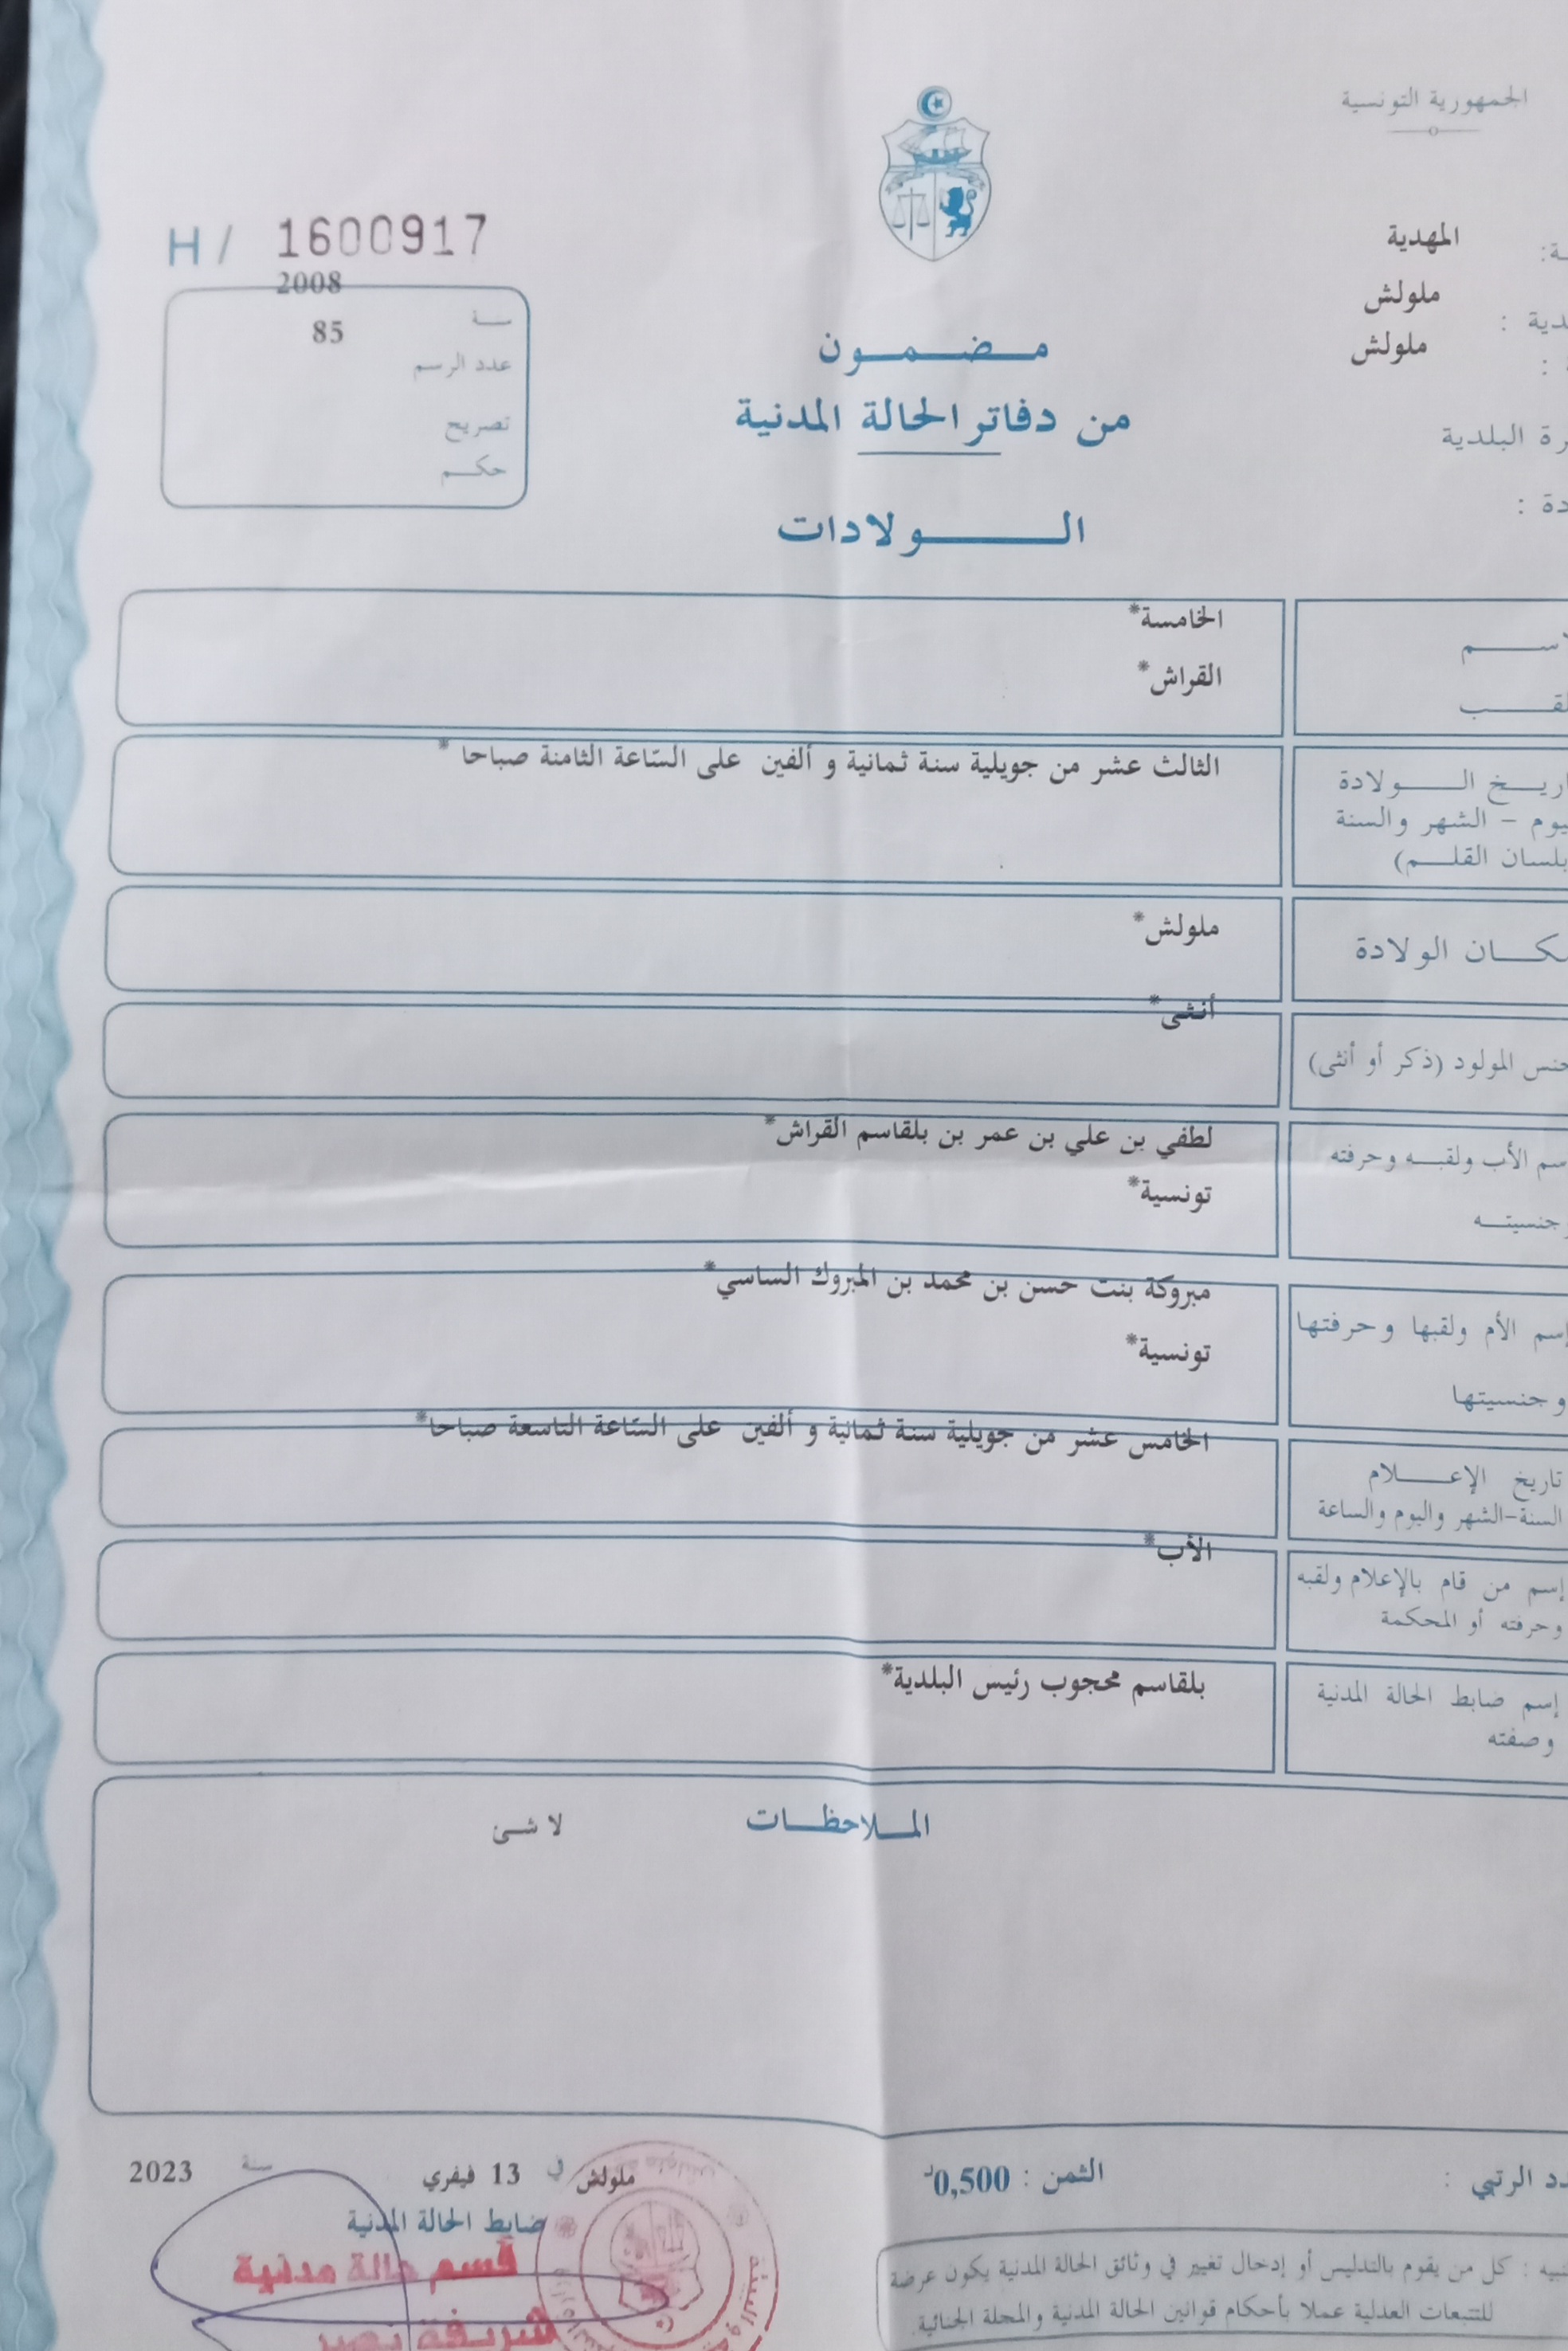 الجمهورية التونسية
المهدية
ملولش
ملولش
البلدية
H/ 1600917
2008
سنة
85
عدد الرسم
تصريح
حكم
مضمون
من دفاتر الحالة المدنية
الولادات
الخامسة*
القراش*
الثالث عشر من جويلية سنة ثمانية و ألفين على السّاعة الثامنة صباحا *
الولادة
- الشهر والسنة
بلسان القلم)
ملولش*
الولادة
أنثى*
المولود (ذكر أو أنثى)
لطفي بن علي بن عمر بن بلقاسم القراش*
الأب ولقبه وحرفته
تونسية*
جنسيته
مبروكة بنت حسن بن محمد بن المبروك الساسي*
إسم الأم ولقبها وحرفتها
تونسية*
وجنسيتها
الخامس عشر من جويلية سنة ثمانية و ألفين على السّاعة التاسعة صباحا*
تاريخ الإعلام
السنة-الشهر واليوم والساعة
الأب*
إسم من قام بالإعلام ولقبه
وحرفته أو المحكمة
بلقاسم محجوب رئيس البلدية*
إسم ضابط الحالة المدنية
وصفته
الملاحظات
لا شئ
الرتبي :
الثمن : 0,500د
ملولش في 13 فيفري سنة 2023
ضابط الحالة المدنية
قسم حالة مدنية
شريفة نصر
: كل من يقوم بالتدليس أو إدخال تغيير في وثائق الحالة المدنية يكون عرضة
للتتبعات العدلية عملا بأحكام قوانين الحالة المدنية والمجلة الجنائية.